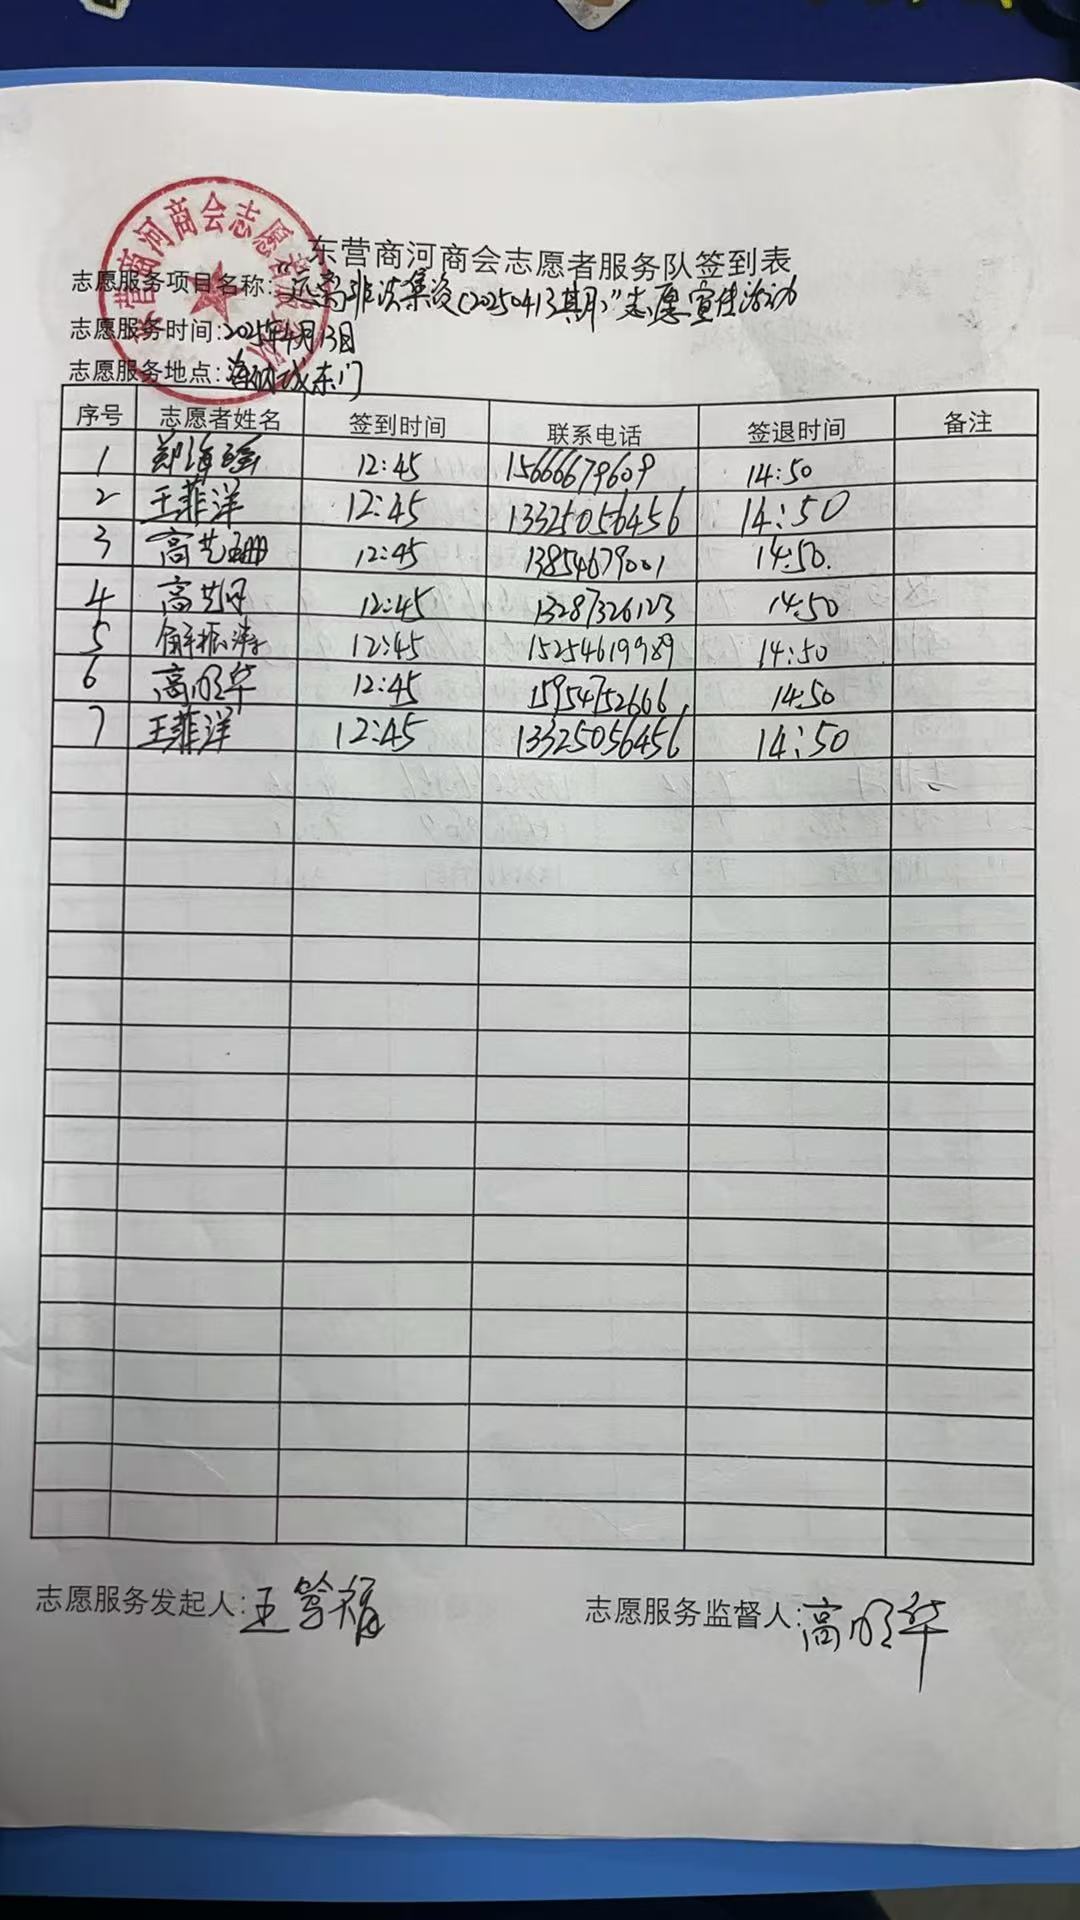 东营商河商会志愿者服务队签到表
志愿服务项目名称:“远离非法集资(20250413期)”志愿宣传活动
志愿服务时间:2025年4月13日
志愿服务地点: 东门
序号 志愿者姓名 签到时间 联系电话 签退时间 备注
1 郑海强 12:45 15666679609 14:50
2 王菲洋 12:45 13325056456 14:50
3 高艺珊 12:45 13854679001 14:50.
4 高 12:45 13287326123 14:50
5 解振涛 12:45 15254619989 14:50
6 高明华 12:45 15954752666 14:50
7 王菲洋 12:45 13325056456 14:50
志愿服务发起人: 王 志愿服务监督人: 高明华